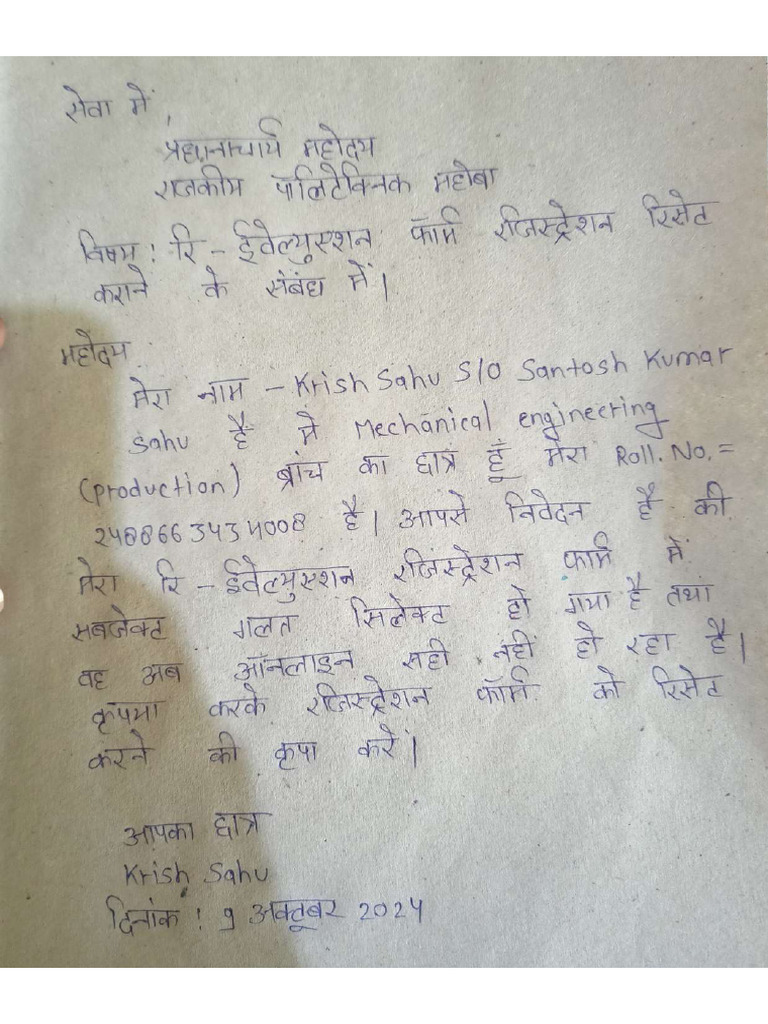 सेवा में,
प्रधानाचार्य महोदय
राजकीय पॉलिटेक्निक महोबा
विषय : रि - ईवेल्युएशन फॉर्म रजिस्ट्रेशन रिसेट
कराने के संबंध में।
महोदय
मेरा नाम - Krish Sahu S/O Santosh Kumar
Sahu है मैं Mechanical engineering
(production) ब्रांच का छात्र हूँ मेरा Roll. No. =
2488663434008 है। आपसे निवेदन है की
मेरा रि - ईवेल्युएशन रजिस्ट्रेशन फॉर्म में
सबजेक्ट गलत सिलेक्ट हो गया है तथा
वह अब ऑनलाइन सही नहीं हो रहा है।
कृपया करके रजिस्ट्रेशन फॉर्म को रिसेट
करने की कृपा करें।
आपका छात्र
Krish Sahu
दिनांक : 9 अक्तूबर 2024